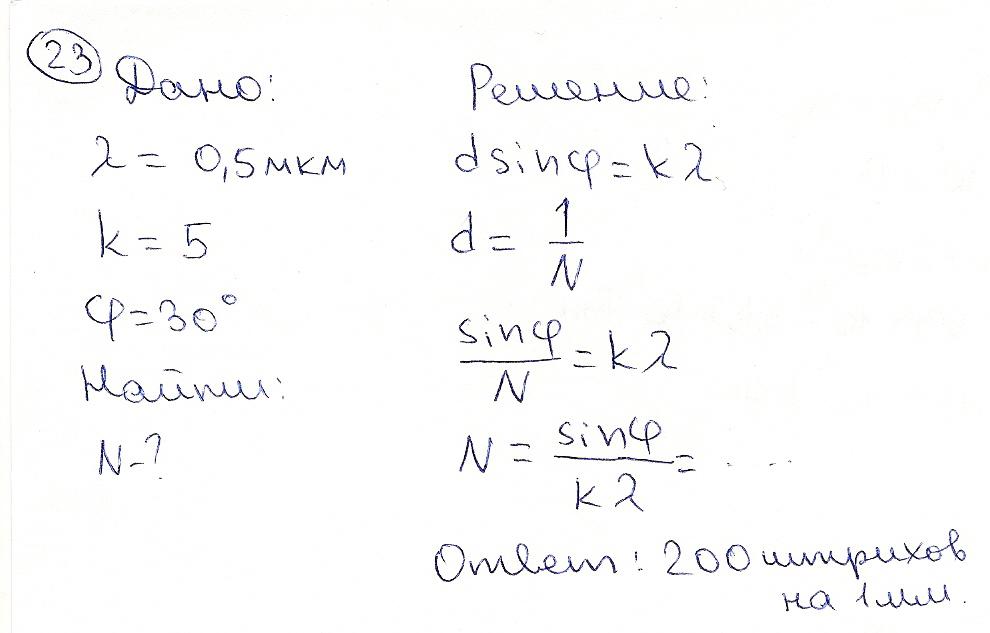 23
Дано:
λ = 0,5 мкм
k = 5
φ = 30°
Найти:
N - ?
Решение:
d sinφ = kλ
d = 1/N
sinφ/N = kλ
N = sinφ/kλ = .....
Ответ: 200 штрихов
на 1 мм.